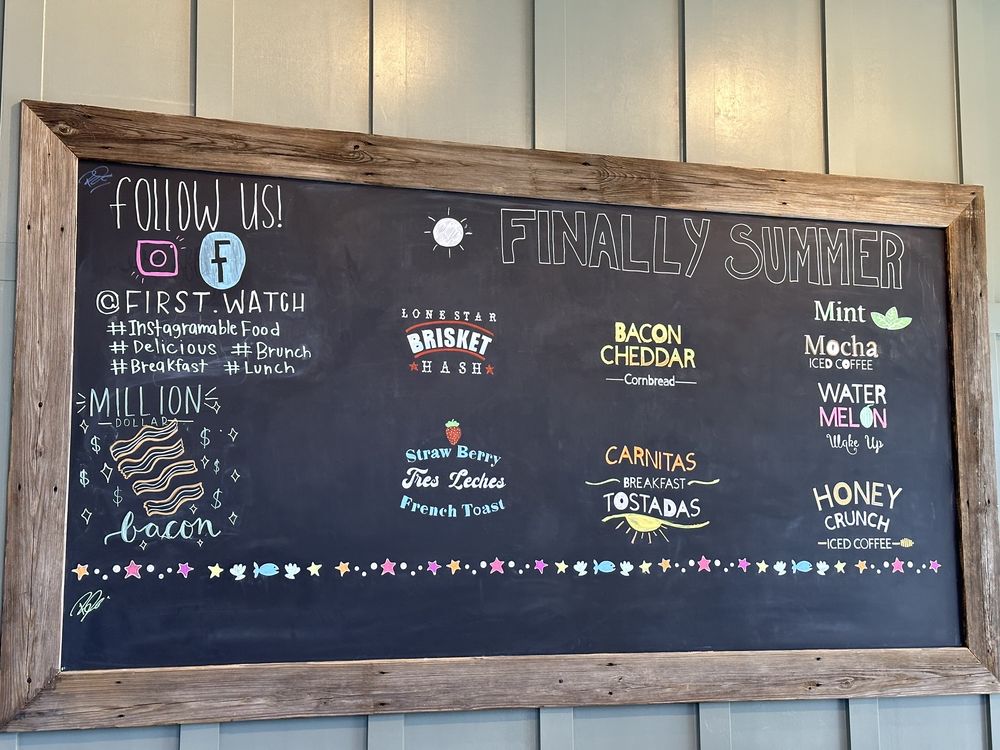 FOLLOW US!
f
@FIRST.WATCH
#Instagramable Food
#Delicious #Brunch
#Breakfast #Lunch
MILLION
DOLLAR
$ $
$ $
$ $
bacon
FINALLY SUMMER
LONE STAR
BRISKET
HASH
Straw Berry
Tres Leches
French Toast
BACON
CHEDDAR
Cornbread
CARNITAS
BREAKFAST
TOSTADAS
Mint
Mocha
ICED COFFEE
WATER
MELON
Wake Up
HONEY
CRUNCH
ICED COFFEE